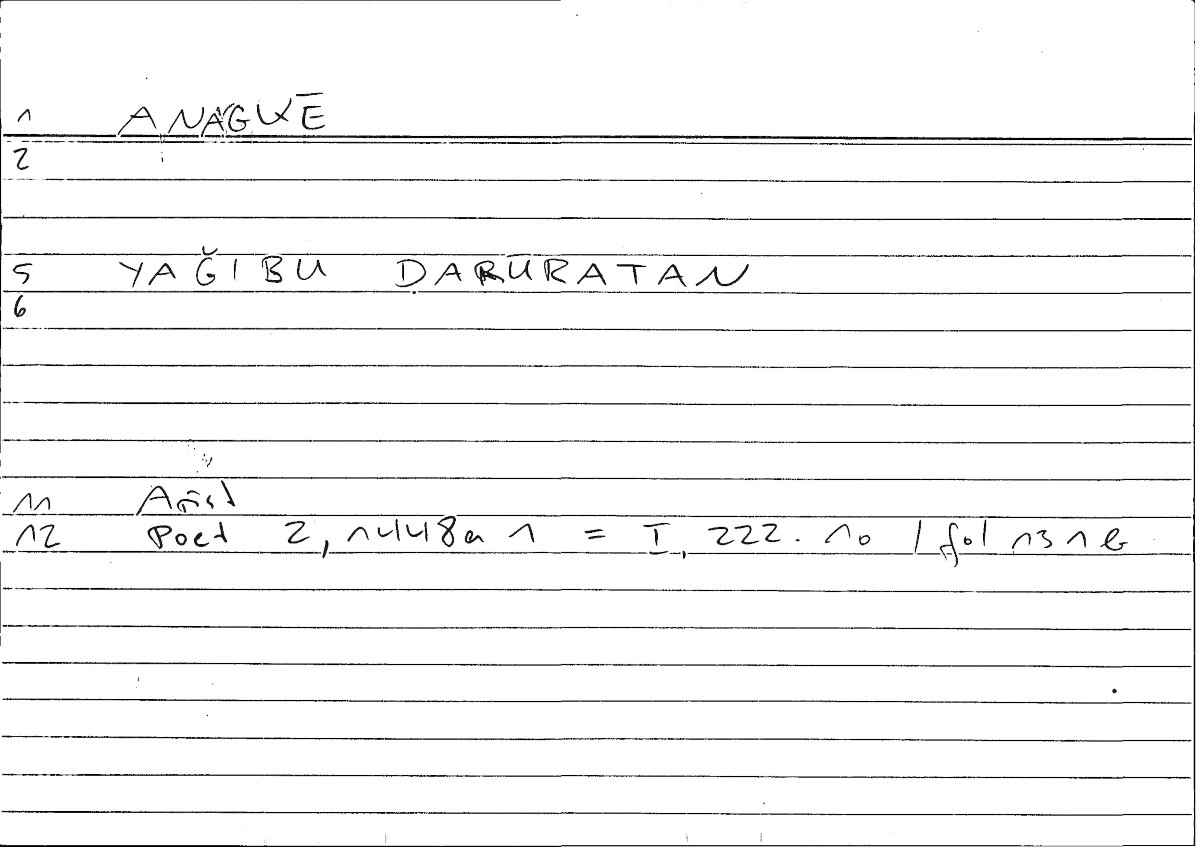 1 ANAGKĒ
2
5 YAĞIBU ḌARŪRATAN
6
11 Arist
12 Poet 2, 1448a 1 = I, 222. 10 / fol 131b